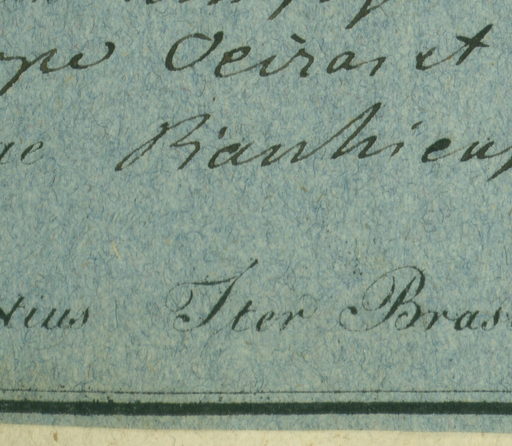 ope Oeiras et
ae Piauhiens
tius Iter Bras